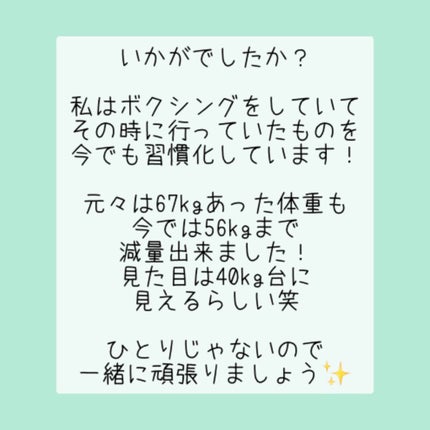 いかがでしたか？
私はボクシングをしていて
その時に行っていたものを
今でも習慣化しています！
元々は67kgあった体重も
今では56kgまで
減量出来ました！
見た目は40kg台に
見えるらしい笑
ひとりじゃないので
一緒に頑張りましょう✨